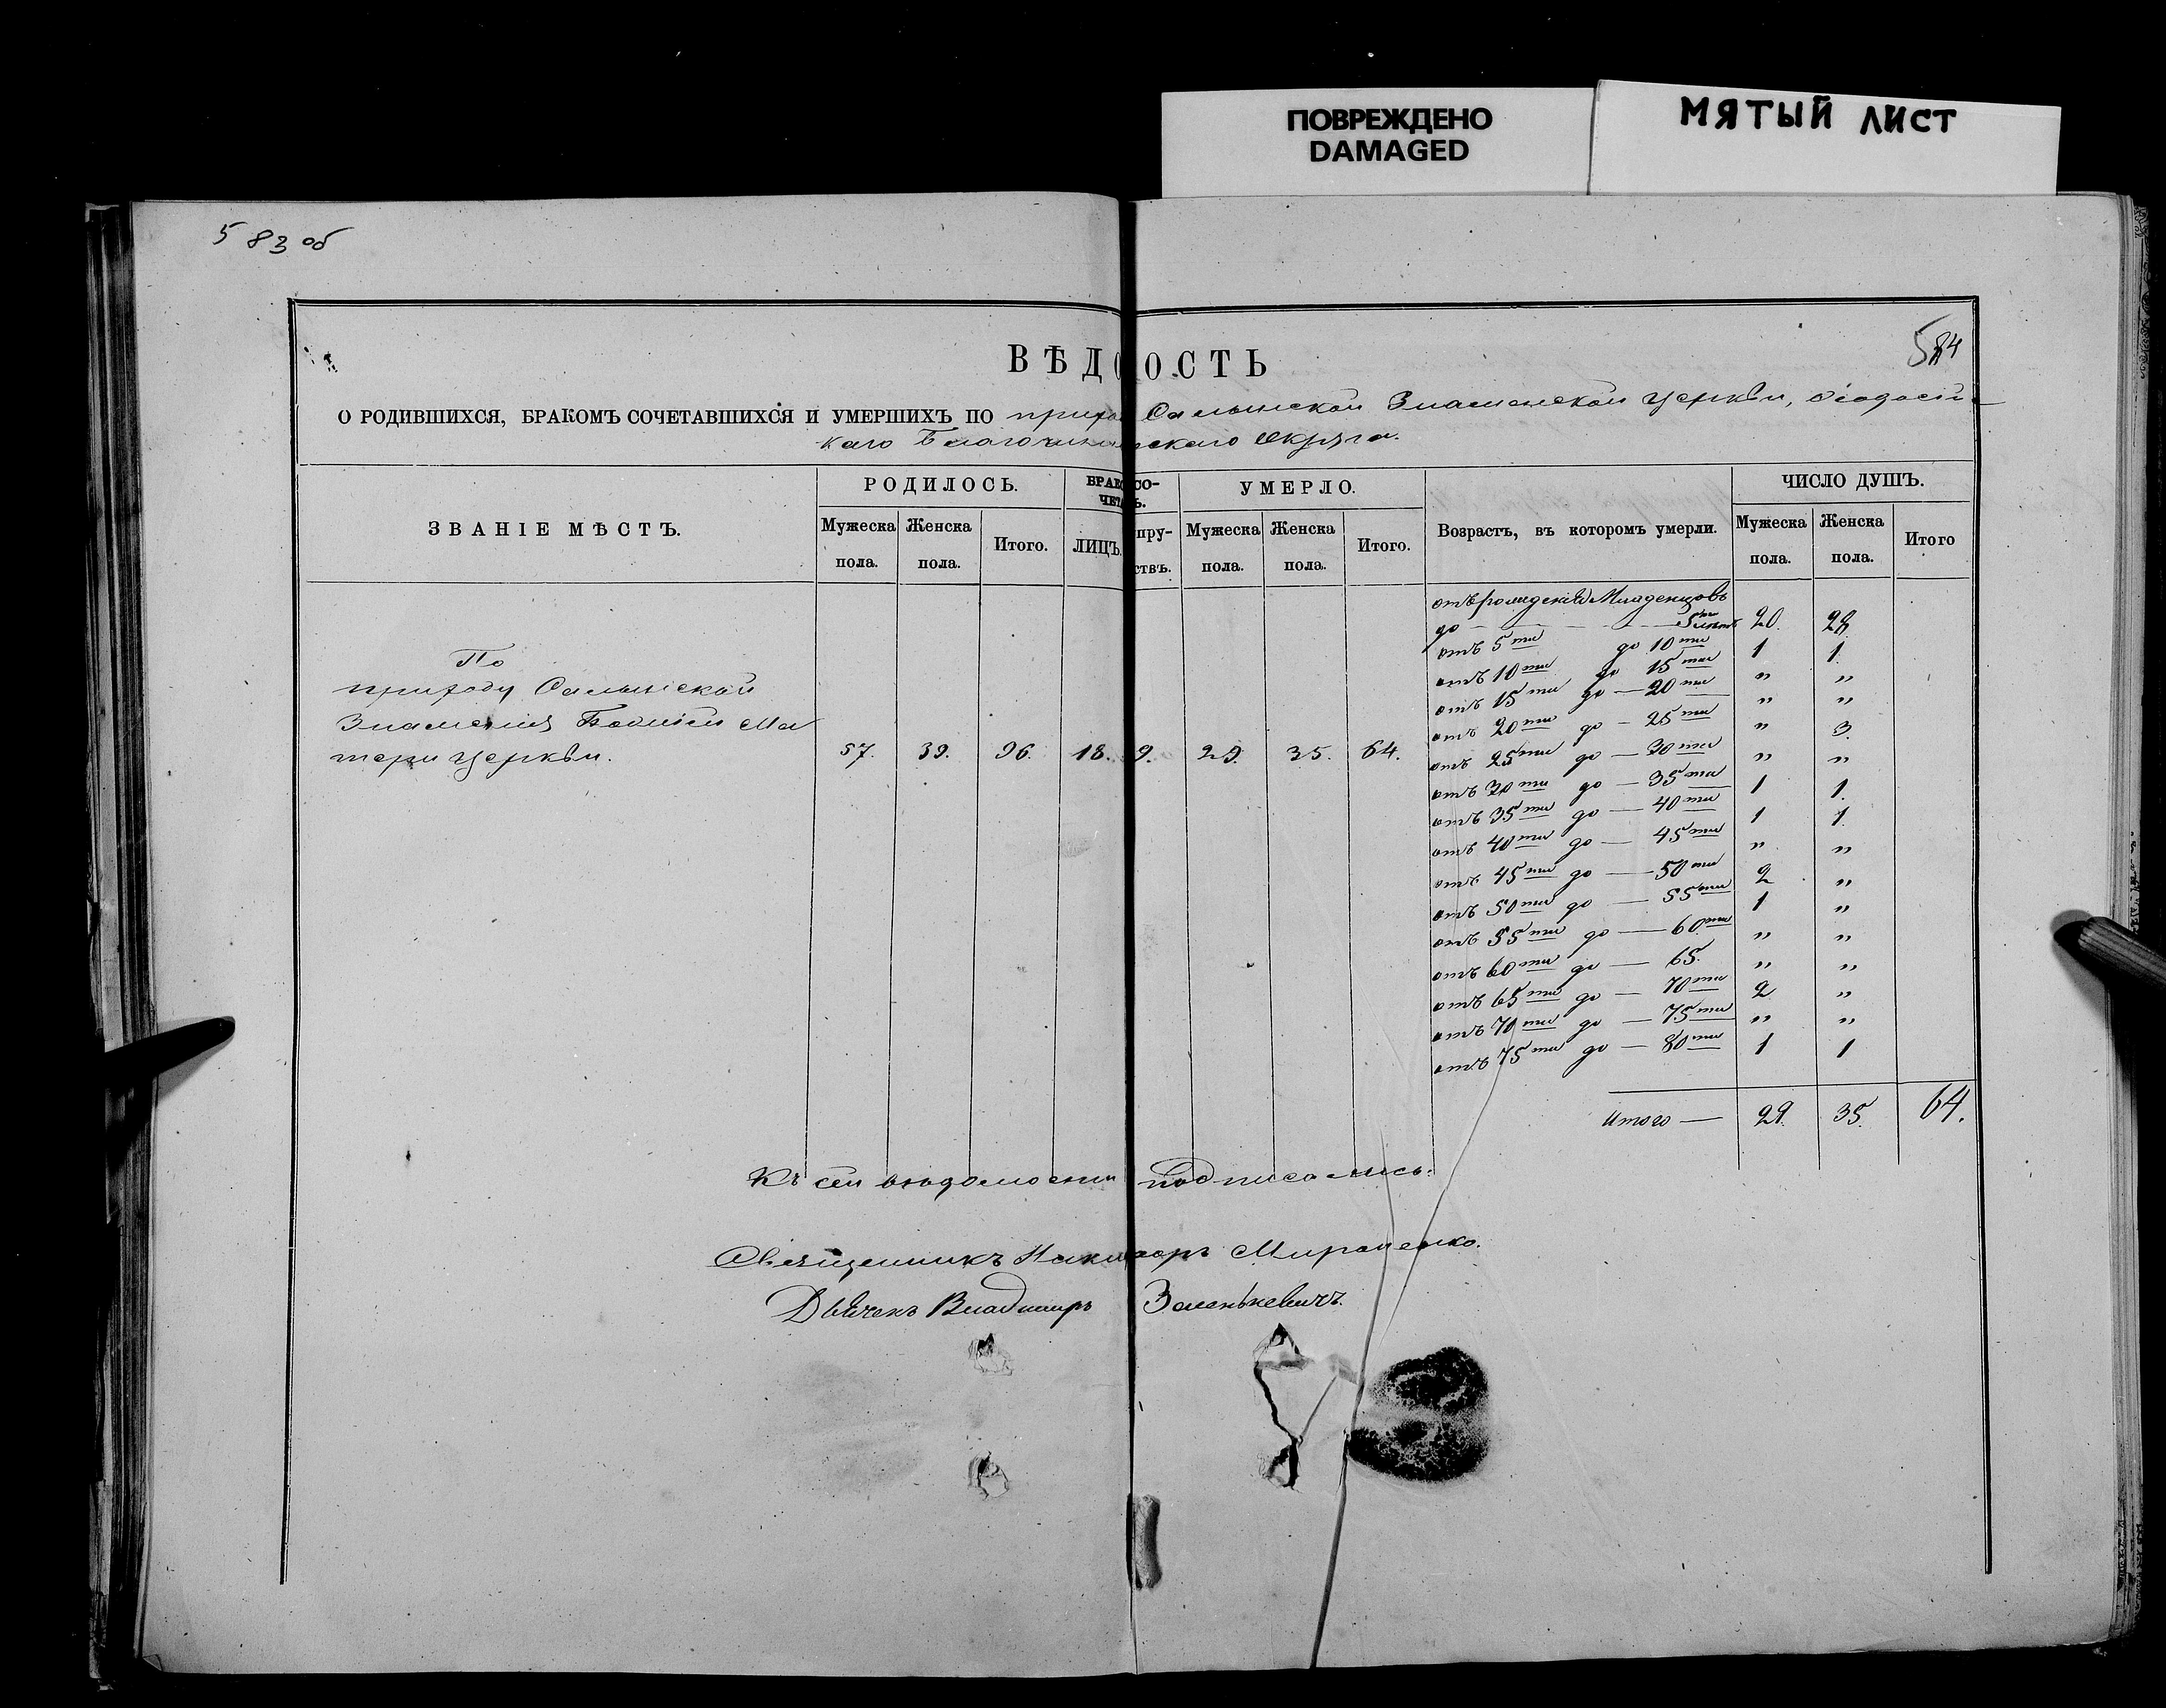 ПОВРЕЖДЕНО
DAMAGED
МЯТЫЙ ЛИСТ
583 об
584
ВѢДО ОСТЬ
О РОДИВШИХСЯ, БРАКОМЪ СОЧЕТАВШИХСЯ И УМЕРШИХЪ ПО прихо Салынской Знаменской церкви,
каго Благочинническаго Округа.
ЗВАНІЕ МѢСТЪ.
РОДИЛОСЬ.
Мужеска пола.
Женска пола.
Итого.
БРАКО СО-
ЧЕТ Ь.
ЛИЦЪ.
пру-
ствъ.
УМЕРЛО.
Мужеска пола.
Женска пола.
Итого.
Возрастъ, въ которомъ умерли.
ЧИСЛО ДУШЪ.
Мужеска пола.
Женска пола.
Итого
По
приходу Салынской
Знаменія Божіей Ма
тери церкви.
57. 39. 96. 18. 9. 29. 35. 64.
отъ рожденія Младенцовъ
до — 5ти лѣтъ 20. 28.
отъ 5ти до 10ти 1 1.
отъ 10ти до 15ти „ „
отъ 15ти до — 20ти „ „
отъ 20ти до — 25ти „ 3.
отъ 25ти до — 30ти „ „
отъ 30ти до — 35ти 1 1.
отъ 35ти до — 40ти 1 1.
отъ 40ти до — 45ти „ „
отъ 45ти до — 50ти 2 „
отъ 50ти до — 55ти 1 „
отъ 55ти до — 60ти „ „
отъ 60ти до — 65. „ „
отъ 65ти до — 70ти 2 „
отъ 70ти до — 75ти „ „
отъ 75ти до — 80ти 1 1
Итого — 29. 35. 64.
Къ сей вѣдомости подписались:
Священникъ Никифоръ Мироненко.
Дьячекъ Владимиръ Зеленькевичъ.